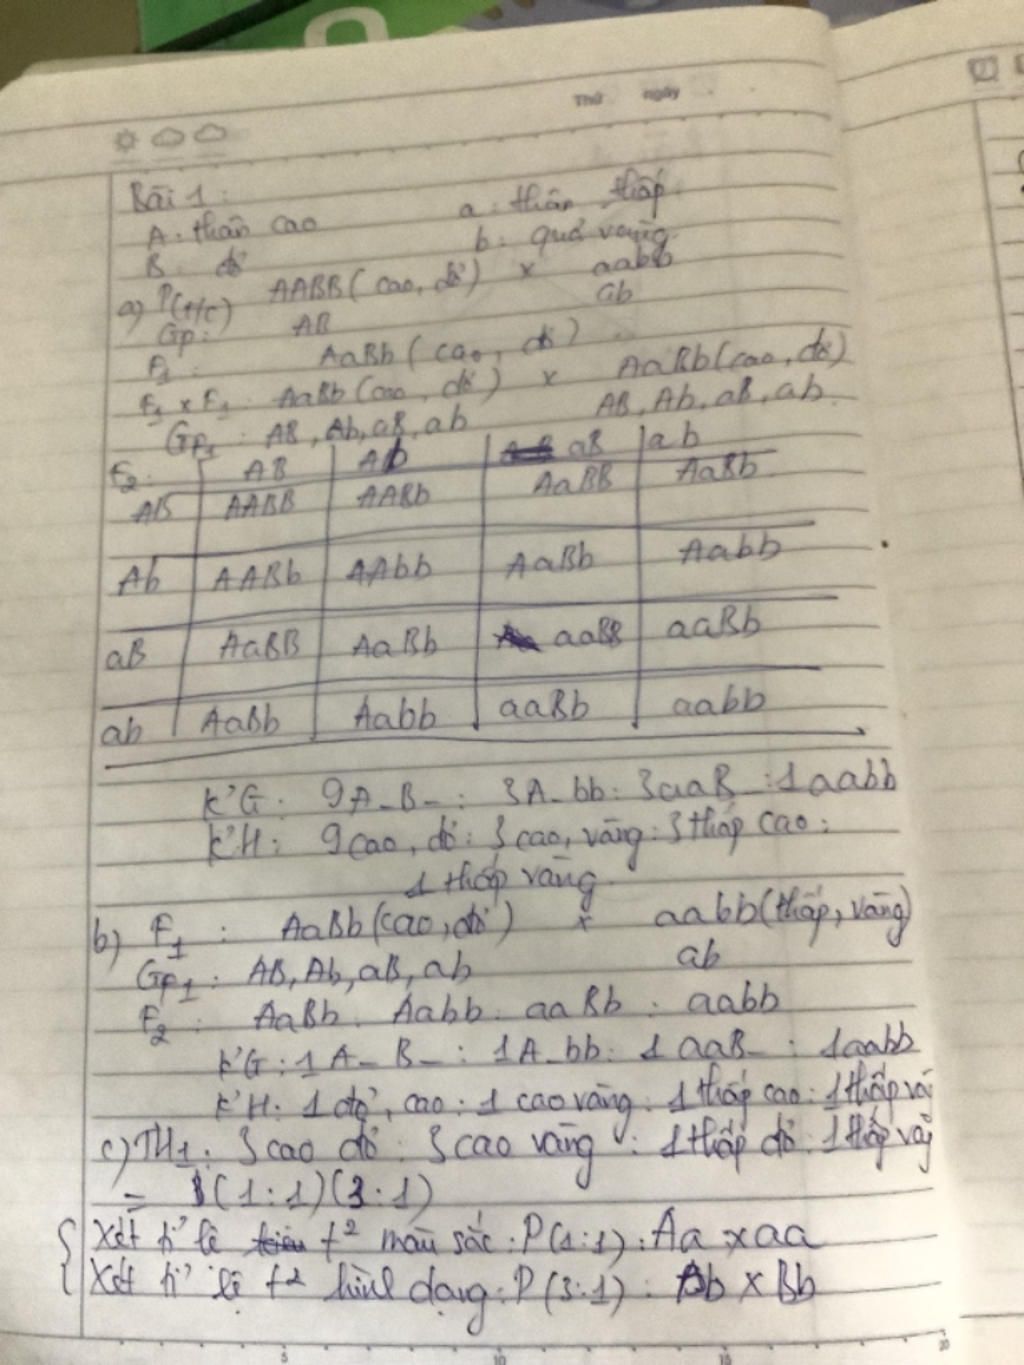 Thứ ngày
Bài 1:
A: thân cao a: thân thấp
B: đỏ b: quả vàng
a) P(t/c) AABB (cao, đỏ) x aabb
Gp: AB ab
F1: AaBb (cao, đỏ)
F1 x F1: AaBb (cao, đỏ) x AaBb (cao, đỏ)
GF1: AB, Ab, aB, ab AB, Ab, aB, ab
F2: AB Ab aB ab
AB AABB AABb AaBB AaBb
Ab AABb AAbb AaBb Aabb
aB AaBB AaBb aaBB aaBb
ab AaBb Aabb aaBb aabb
K'G: 9A_B_: 3A_bb: 3aaB_: 1aabb
K'H: 9cao, đỏ: 3 cao, vàng: 3 thấp cao:
1 thấp vàng
b) F1: AaBb (cao, đỏ) x aabb (thấp, vàng)
GF1: AB, Ab, aB, ab ab
F2: AaBb: Aabb: aaBb: aabb
K'G: 1A_B_: 1A_bb: 1aaB_: 1aabb
K'H: 1 đỏ, cao: 1 cao vàng: 1 thấp cao: 1 thấp và
c) TH1: 3 cao đỏ: 3 cao vàng: 1 thấp đỏ: 1 thấp vàg
= (1:1)(3:1)
Xét tỉ lệ t² màu sắc: P(1:1): Aa x aa
Xét tỉ lệ t² hình dạng: P(3:1): Bb x Bb
5 10 15 20